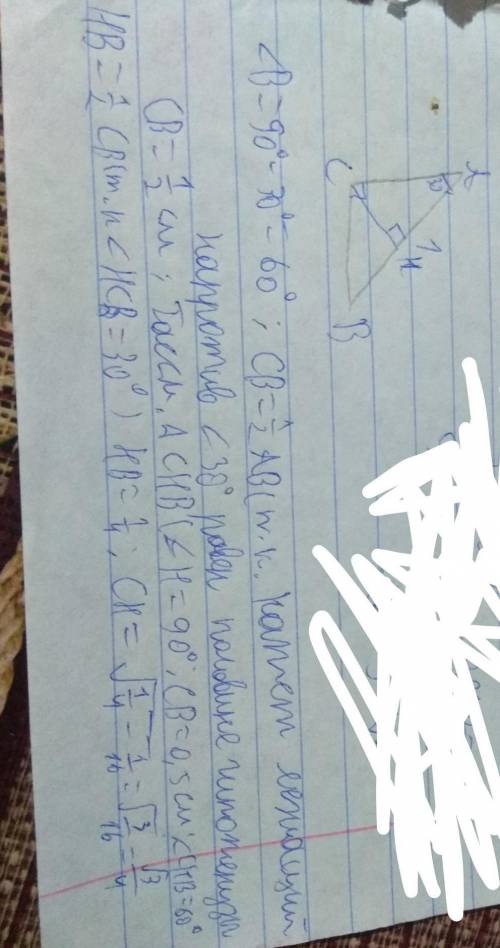 A
30°
1
H
C
B
∠B=90°-30°=60°; CB=½AB(т.к. катет лежащий
напротив ∠30° равен половине гипотенузы
CB=½ см; Тассм. ΔCHB(∠H=90°; CB=0,5см; ∠HB=60°
HB=½ CB(т.к ∠HCB=30°) HB=¼; CH=√¼-1/16=√3/16=√3/4